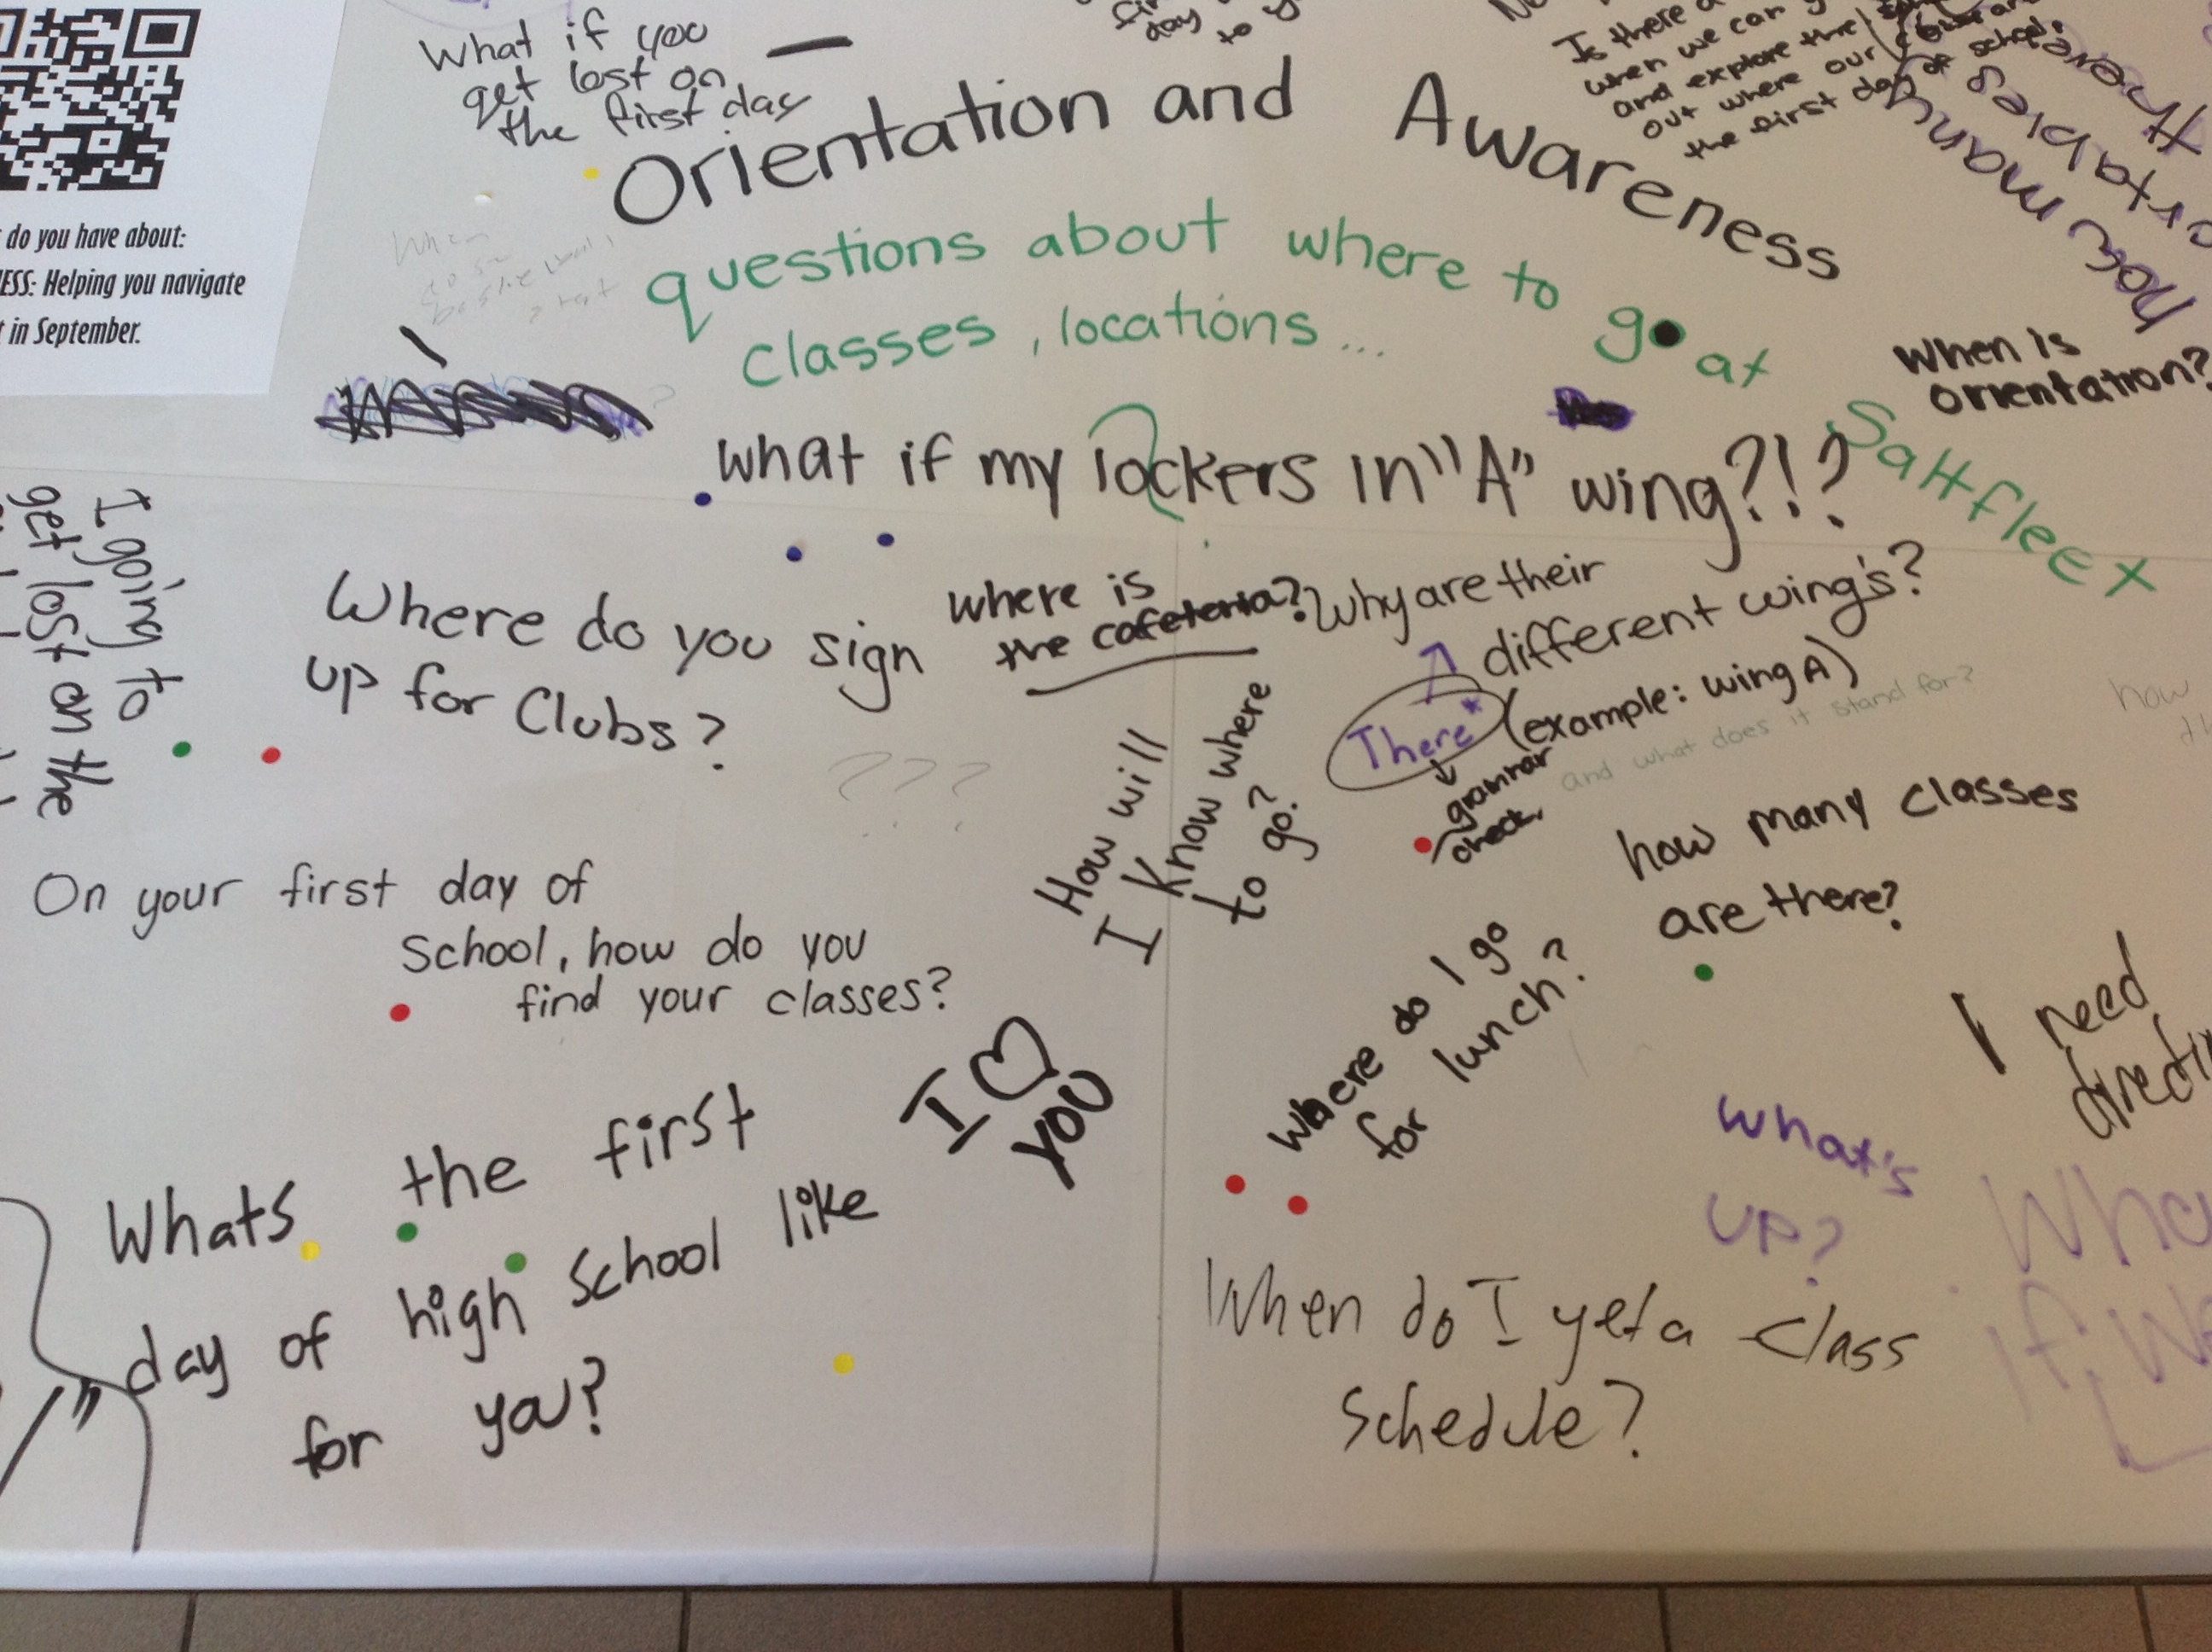 do you have about:
ESS: Helping you navigate
in September.
What if you
get lost on
the first day
day
to
Is there a
when we can
and explore the
out where our
the first day of school.
How many
Orientation and Awareness
questions about where to go at
classes, locations...
Saltfleet
When is
orientation?
what if my lockers in "A" wing?!?
I going to
get lost on the
Where do you sign
up for Clubs?
where is
the cafeteria?
Why are their
different wing's?
(example: wing A)
and what does it stand for?
There*
grammar
check
how
???
How will
I know where
to go?
how many classes
are there?
On your first day of
School, how do you
find your classes?
Where do I go
for lunch?
I need
I ♡
YOU
what's
up?
Whats the first
day of high school like
for you?
When do I get a class
schedule?
If